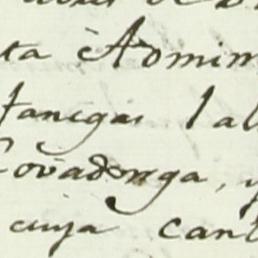 ta Admin
fanegas Jal
Covadonga, y
cuya cant